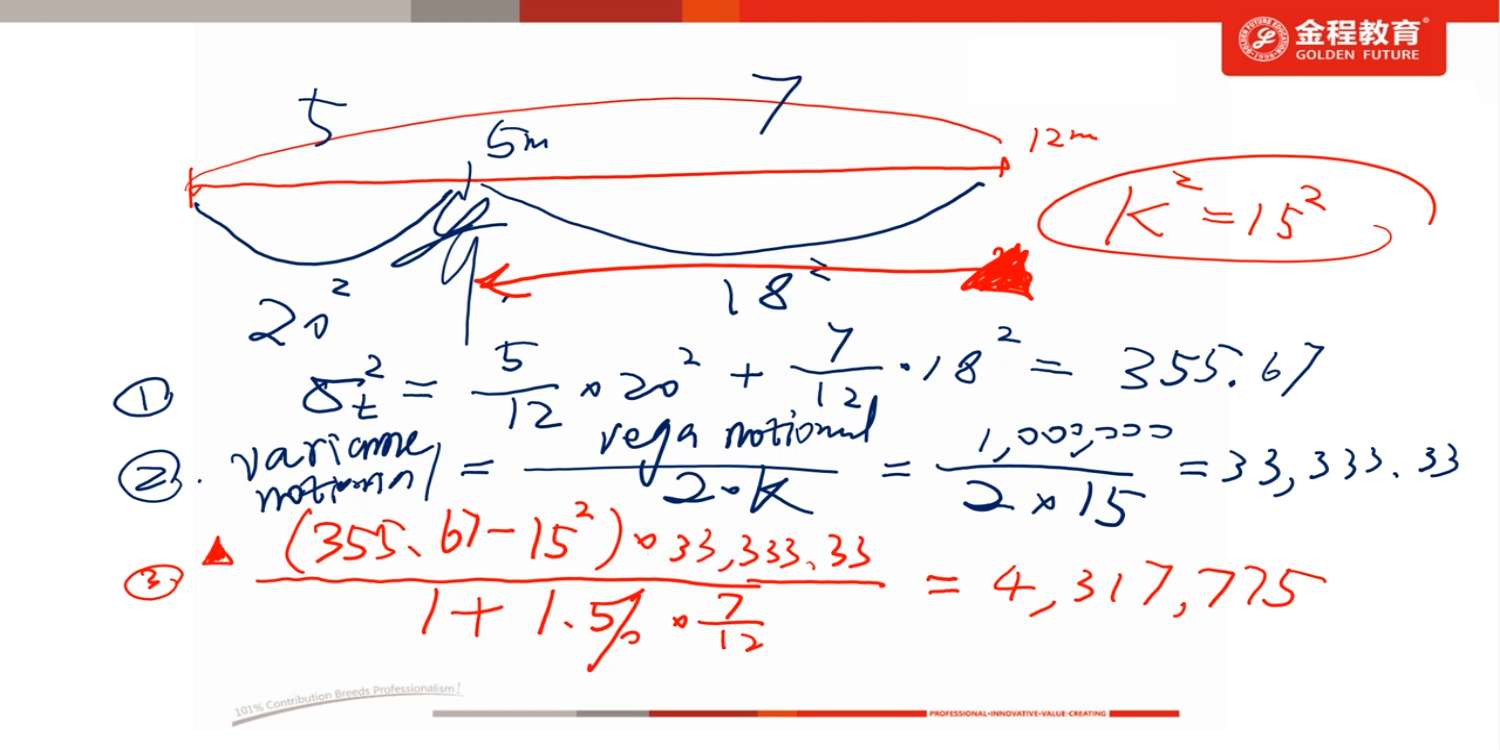 金程教育®
GOLDEN FUTURE
5 7
5m 12m
K² = 15²
20² 18²
① σ_t² = 5/12 × 20² + 7/12 · 18² = 355.67
②. variance notional = vega notional / 2·K = 1,000,000 / 2 × 15 = 33,333.33
③ (355.67 - 15²) · 33,333.33 / 1 + 1.5% · 7/12 = 4,317,775
101% Contribution Breeds Professionalism!
PROFESSIONAL·INNOVATIVE·VALUE-CREATING